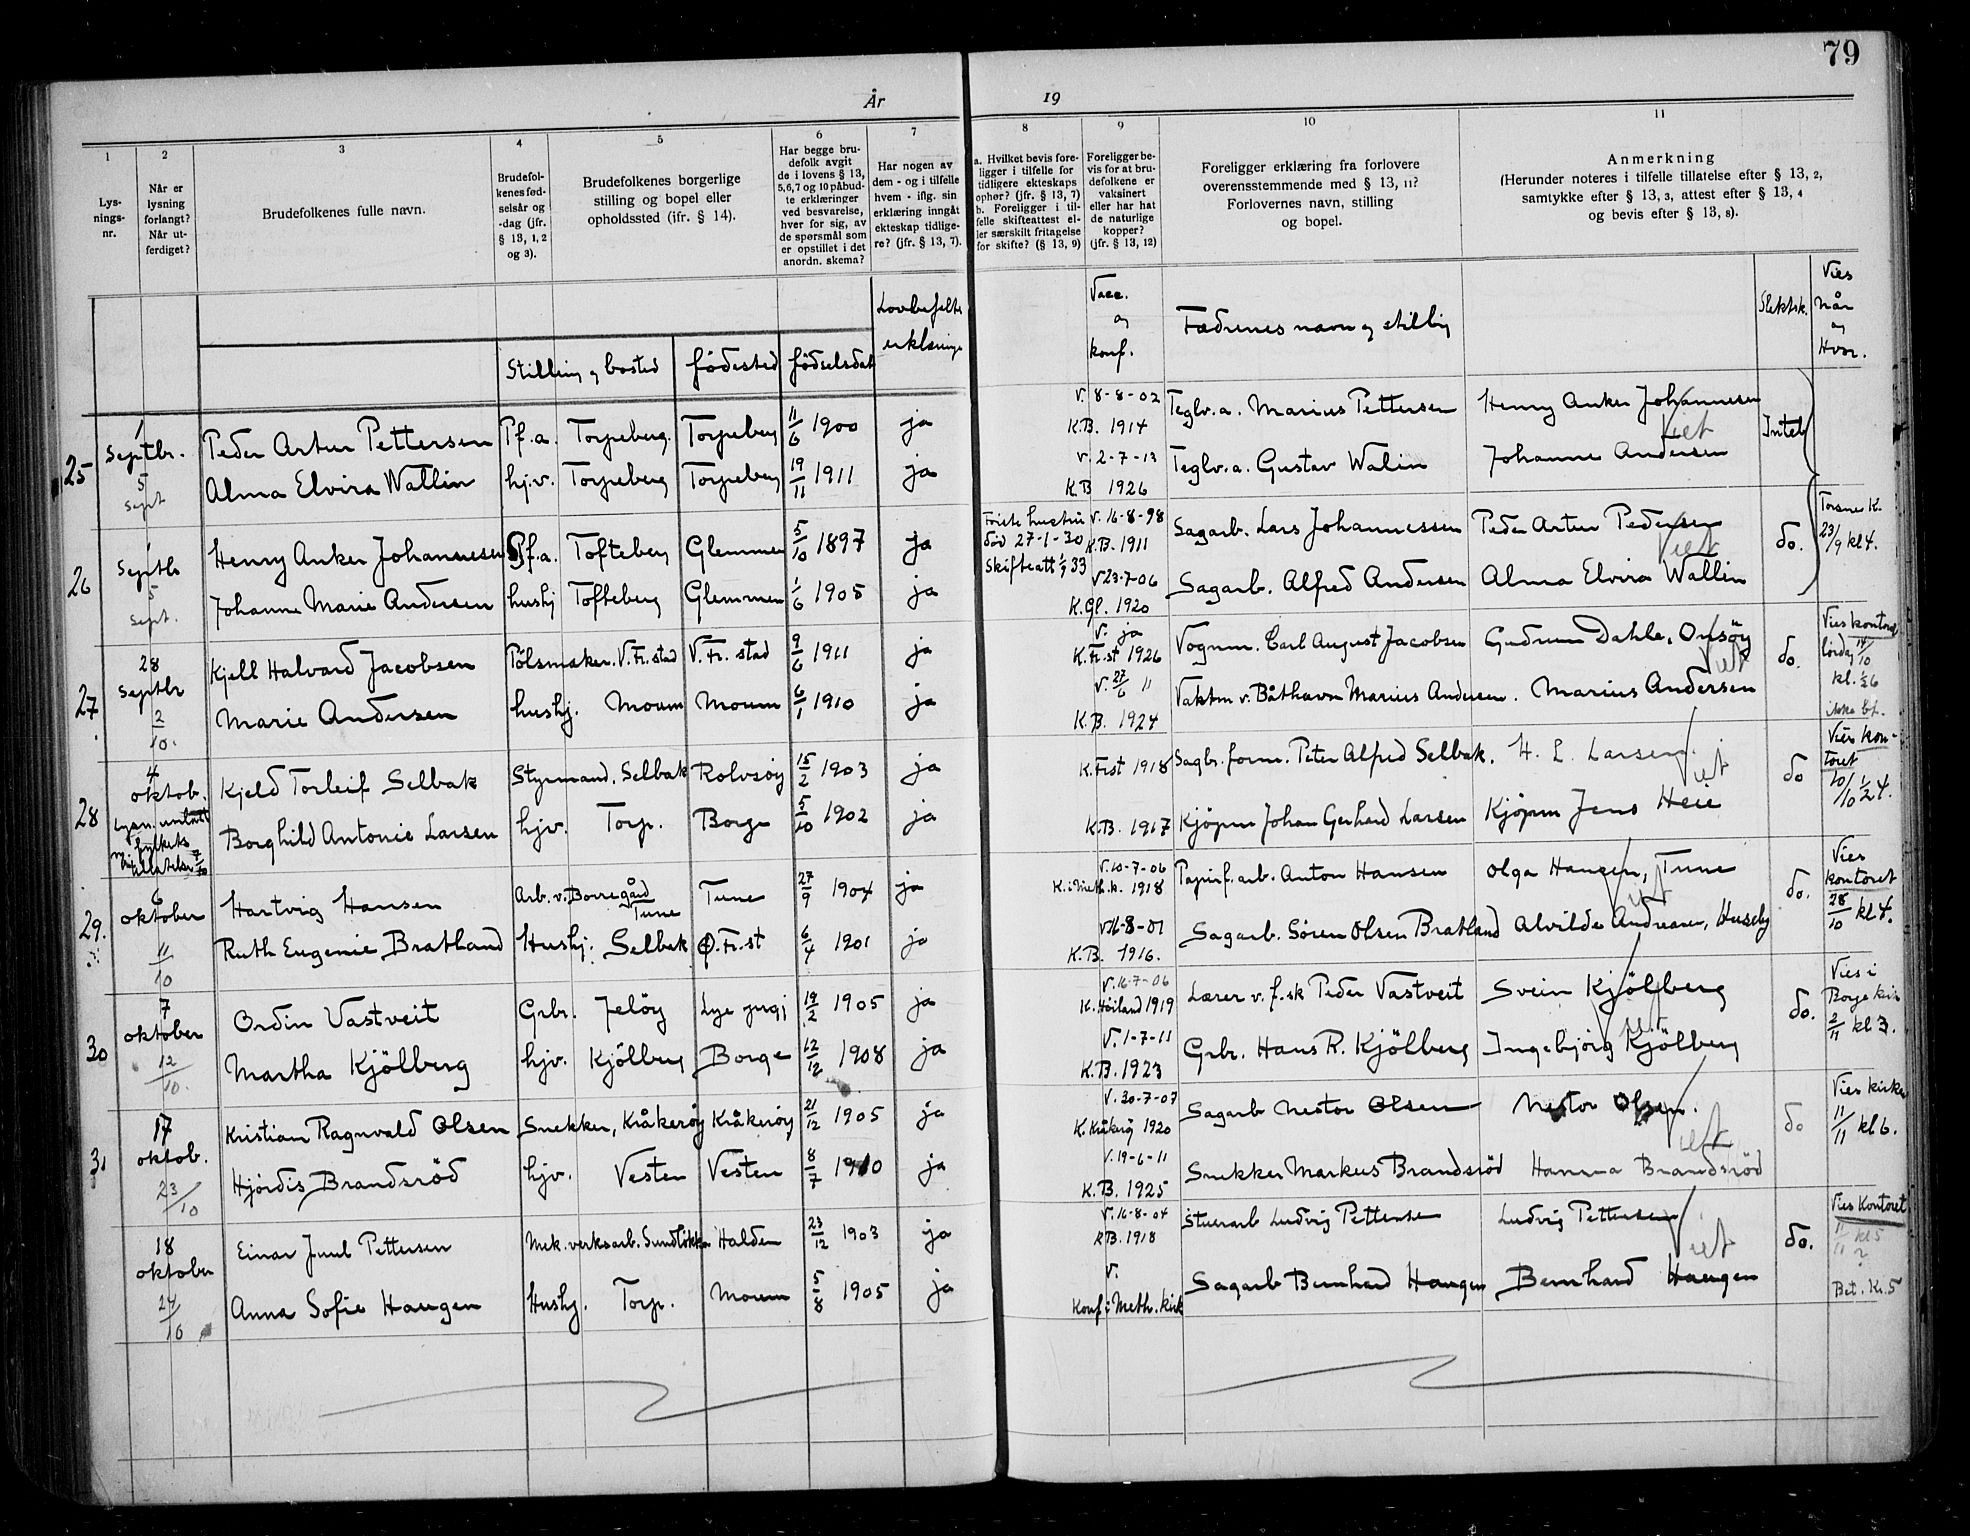 79
År 19
1
Lys-
nings-
nr.
2
Når er
lysning
forlangt?
Når ut-
ferdiget?
3
Brudefolkenes fulle navn.
4
Brudefol-
kenes fød-
selsår og
-dag (jfr.
§ 13, 1, 2
og 3).
5
Brudefolkenes borgerlige
stilling og bopel eller
opholdssted (jfr. § 14).
6
Har begge bru-
defolk avgit
de i lovens § 13,
5,6,7 og 10 påbud-
te erklæringer
ved besvarelse,
hver for sig, av
de spørsmål som
er opstillet i det
anordn. skema?
7
Har nogen av
dem - og i tilfelle
hvem - iflg. sin
erklæring inngåt
ekteskap tidlige-
re? (jfr. § 13, 7).
8
a. Hvilket bevis fore-
ligger i tilfelle for
tidligere ekteskaps
ophør? (jfr. § 13, 7)
b. Foreligger i til-
felle skifteattest el-
ler særskilt fritagelse
for skifte? (§ 13, 9)
9
Foreligger be-
vis for at bru-
defolkene er
vaksinert
eller har hat
de naturlige
kopper?
(jfr. § 13, 12)
10
Foreligger erklæring fra forlovere
overensstemmende med § 13, 11?
Forlovernes navn, stilling
og bopel.
11
Anmerkning
(Herunder noteres i tilfelle tillatelse efter § 13, 2,
samtykke efter § 13, 3, attest efter § 13, 4
og bevis efter § 13, 8).
Stilling og bosted fødested fødselsdat
Lovbefalte
erklæringer
Vacc.
og
konf.
Fædrenes navn og stilling
Slektsk.
Vies
når
og
Hvor.
25 1 Septbr. 5 Sept
Peder Artur Pettersen Pf.a. Torpeberg. Torpeberg 11/6 1900 ja V. 8-8-02 K.B. 1914 Teglv.a. Marius Pettersen Henry Anker Johannesen
Alma Elvira Wallin hj.v. Torpeberg Torpeberg 19/11 1911 ja V. 2-7-13 K.B 1926 Teglv.a. Gustav Walin Johanne Andersen
Intet
26 1 Septb 5 Sept.
Henry Anker Johannesen Pf.a. Tofteberg Glemmen 5/10 1897 ja Første hustru død 27-1-30 Skifteatt 1/9 33 V. 16-8-98 K.B. 1911 Sagarb. Lars Johannessen Peder Artur Pedersen
Johanne Marie Andersen hushj Tofteberg Glemmen 1/6 1905 ja V 23-7-06 K.Gl. 1920 Sagarb. Alfred Andersen Alma Elvira Wallin
do. Torsnes K. 23/9 kl 4.
27 28 Septbr 2/10.
Kjell Halvard Jacobsen Pølsmaker. V.Fr.stad V.Fr. stad 9/6 1911 ja V. ja K.Fr.st 1926 Vognm. Carl August Jacobsen Gudrun Dahle, Onsøy
Marie Andersen hushj. Moum Moum 6/1 1910 ja V. 27/6 11 K.B. 1924 Vaktm v. Båthavn Marius Andersen. Marius Andersen
do. Vies kontoret lørdag 14/10 kl. ½6 ikke bet.
28 4 oktob.
Kjeld Torleif Selbak Styrmand, Selbak Rolvsøy 15/2 1903 ja K.Frst 1918 Sagbr. form. Peter Alfred Selbak. H. L. Larsen.
Borghild Antonie Larsen hjv. Torp. Borge 5/10 1902 ja K.B. 1917 Kjøpm Johan Gerhard Larsen Kjøpm Jens Heie
do Vies kon-
toret
20/10 ½ 4.
29. 6 oktober 11/10
Hartvig Hansen Arb. v. Borregård Tune Tune 27/9 1904 ja V. 20-7-06 K. i Meth.k. 1918 Papirf.arb. Anton Hansen Olga Haugen, Tune
Ruth Eugenie Bratland Hushj. Selbak Ø.Fr.st 6/4 1901 ja V 16-8-01 K.B. 1916. Sagarb. Søren Olsen Bratland Alvilde Andreasen, Huseby
do. Vies kontoret 28/10 kl 4.
30 7 oktober 12/10.
Ordin Vastveit Grbr. Jeløy Lye 19/2 1905 ja V. 16-7-06 K. Høiland 1919 Lærer v. f.sk Peder Vastveit Svein Kjølberg
Martha Kjølberg hjv. Kjølberg Borge 12/12 1908 ja V. 1-7-11 K.B. 1923 Grbr. Hans R. Kjølberg Ingebjørg Kjølberg
do. Vies i Borge kir 2/11 kl 3.
31 17 oktob. 23/10
Kristian Ragnvald Olsen Snekker, Kråkerøy Kråkerøy 21/12 1905 ja V. 30-7-07 K. Kråkerøy 1920 Sagarb Nestor Olsen Nestor Olsen.
Hjørdis Brandsrød hjv. Vesten Vesten 8/7 1910 ja V. 19-6-11 K.B. 1925 Snekker Markus Brandsrød Hanna Brandsrød
do Vies kirke 11/11 kl 6.
18 oktober 24/10
Einar Juul Pettersen Mek. verksarb. Sundløkka Halden 23/12 1903 ja V. 16-8-04 KB. 1918 Stuerarb Ludvig Pettersen Ludvig Pettersen
Anna Sofie Haugen Hushj. Torp. Moum 5/8 1905 ja V. Konf i Meth. kirk Sagarb Bernhard Haugen Bernhard Haugen
do. Vies Kontoret 11/11 kl 5 ? Bet. Kr. 5